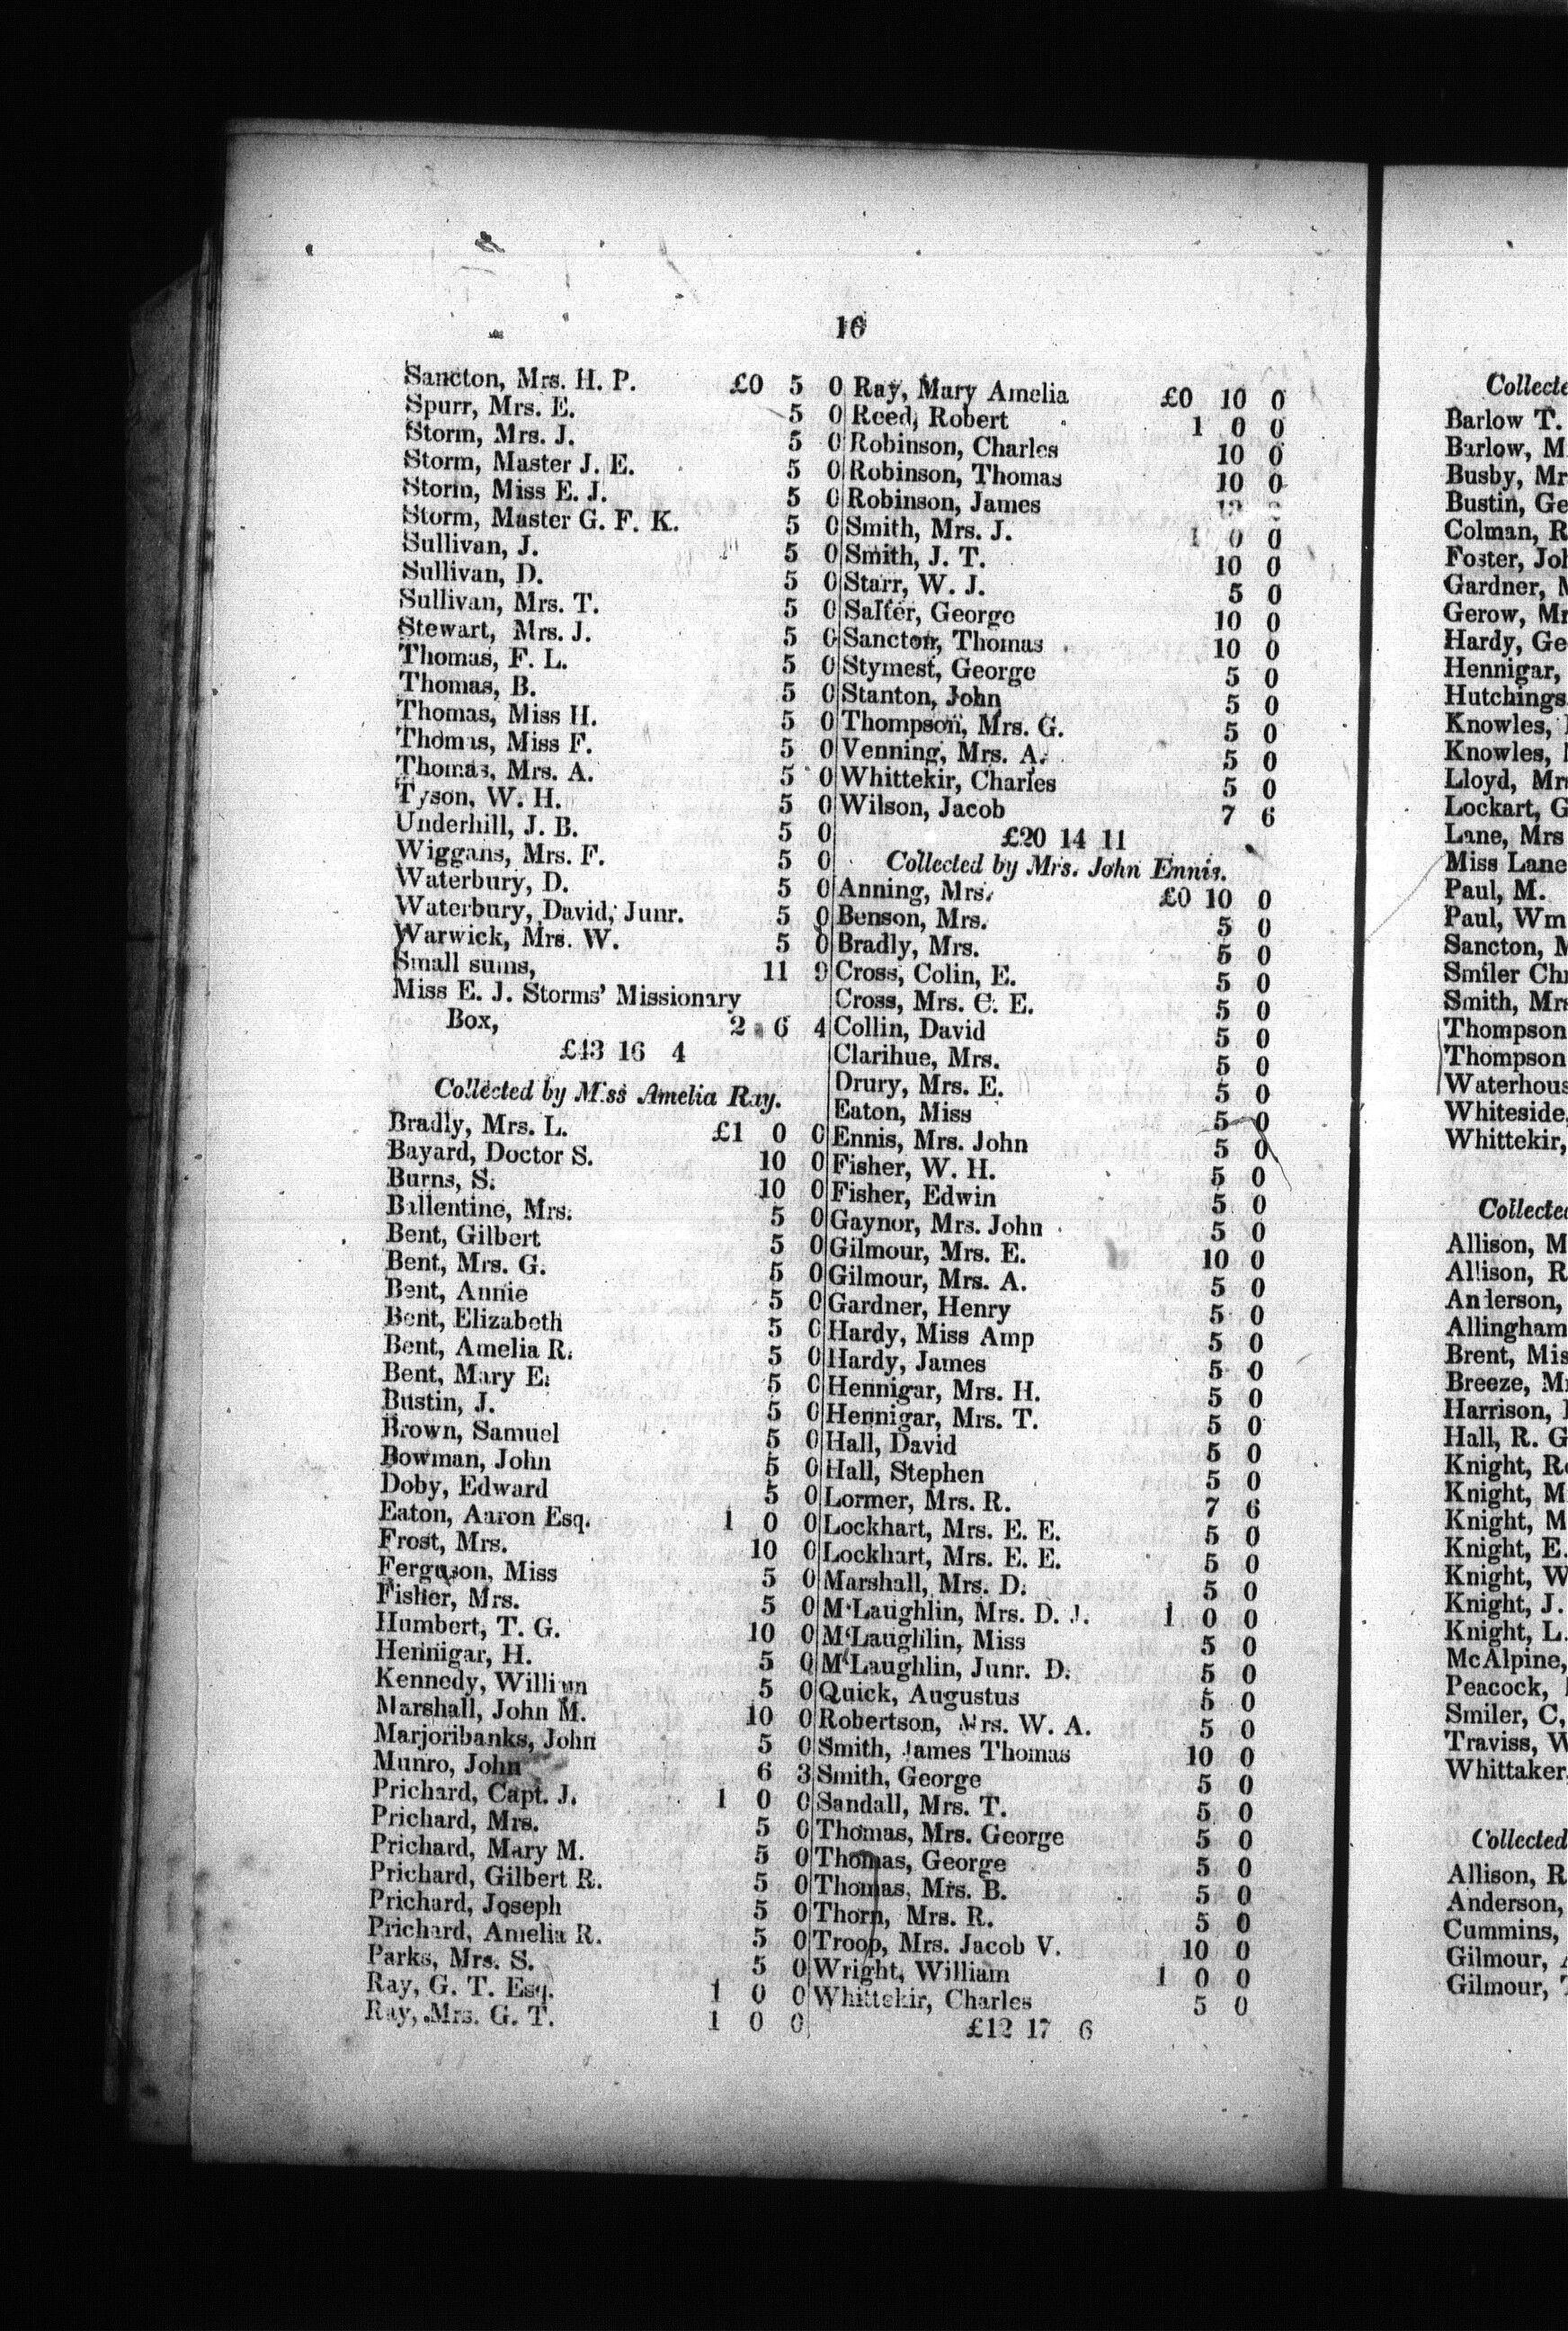 16
Sancton, Mrs. H. P. £0 5 0
Spurr, Mrs. E. 5 0
Storm, Mrs. J. 5 0
Storm, Master J. E. 5 0
Storm, Miss E. J. 5 0
Storm, Master G. F. K. 5 0
Sullivan, J. 5 0
Sullivan, D. 5 0
Sullivan, Mrs. T. 5 0
Stewart, Mrs. J. 5 0
Thomas, F. L. 5 0
Thomas, B. 5 0
Thomas, Miss H. 5 0
Thomas, Miss F. 5 0
Thomas, Mrs. A. 5 0
Tyson, W. H. 5 0
Underhill, J. B. 5 0
Wiggans, Mrs. F. 5 0
Waterbury, D. 5 0
Waterbury, David, Junr. 5 0
Warwick, Mrs. W. 5 0
Small sums, 11 9
Miss E. J. Storms' Missionary
Box, 2 6 4
£43 16 4
Collected by Miss Amelia Ray.
Bradly, Mrs. L. £1 0 0
Bayard, Doctor S. 10 0
Burns, S. 10 0
Ballentine, Mrs. 5 0
Bent, Gilbert 5 0
Bent, Mrs. G. 5 0
Bent, Annie 5 0
Bent, Elizabeth 5 0
Bent, Amelia R. 5 0
Bent, Mary E. 5 0
Bustin, J. 5 0
Brown, Samuel 5 0
Bowman, John 5 0
Doby, Edward 5 0
Eaton, Aaron Esq. 1 0 0
Frost, Mrs. 10 0
Ferguson, Miss 5 0
Fisher, Mrs. 5 0
Humbert, T. G. 10 0
Hennigar, H. 5 0
Kennedy, William 5 0
Marshall, John M. 10 0
Marjoribanks, John 5 0
Munro, John 6 3
Prichard, Capt. J. 1 0 0
Prichard, Mrs. 5 0
Prichard, Mary M. 5 0
Prichard, Gilbert R. 5 0
Prichard, Joseph 5 0
Prichard, Amelia R. 5 0
Parks, Mrs. S. 5 0
Ray, G. T. Esq. 1 0 0
Ray, Mrs. G. T. 1 0 0
Ray, Mary Amelia £0 10 0
Reed, Robert 1 0 0
Robinson, Charles 10 0
Robinson, Thomas 10 0
Robinson, James
Smith, Mrs. J. 1 0 0
Smith, J. T. 10 0
Starr, W. J. 5 0
Salter, George 10 0
Sancton, Thomas 10 0
Stymest, George 5 0
Stanton, John 5 0
Thompson, Mrs. G. 5 0
Venning, Mrs. A. 5 0
Whittekir, Charles 5 0
Wilson, Jacob 7 6
£20 14 11
Collected by Mrs. John Ennis.
Anning, Mrs. £0 10 0
Benson, Mrs. 5 0
Bradly, Mrs. 5 0
Cross, Colin, E. 5 0
Cross, Mrs. C. E. 5 0
Collin, David 5 0
Clarihue, Mrs. 5 0
Drury, Mrs. E. 5 0
Eaton, Miss 5 0
Ennis, Mrs. John 5 0
Fisher, W. H. 5 0
Fisher, Edwin 5 0
Gaynor, Mrs. John 5 0
Gilmour, Mrs. E. 10 0
Gilmour, Mrs. A. 5 0
Gardner, Henry 5 0
Hardy, Miss Amp 5 0
Hardy, James 5 0
Hennigar, Mrs. H. 5 0
Hennigar, Mrs. T. 5 0
Hall, David 5 0
Hall, Stephen 5 0
Lormer, Mrs. R. 7 6
Lockhart, Mrs. E. E. 5 0
Lockhart, Mrs. E. E. 5 0
Marshall, Mrs. D. 5 0
M'Laughlin, Mrs. D. J. 1 0 0
M'Laughlin, Miss 5 0
M'Laughlin, Junr. D. 5 0
Quick, Augustus 5 0
Robertson, Mrs. W. A. 5 0
Smith, James Thomas 10 0
Smith, George 5 0
Sandall, Mrs. T. 5 0
Thomas, Mrs. George 5 0
Thomas, George 5 0
Thomas, Mrs. B. 5 0
Thorn, Mrs. R. 5 0
Troop, Mrs. Jacob V. 10 0
Wright, William 1 0 0
Whittekir, Charles 5 0
£12 17 6
Collecte
Barlow T.
Barlow, M
Busby, Mr
Bustin, Ge
Colman, R
Foster, Joh
Gardner, M
Gerow, Mr
Hardy, Ge
Hennigar,
Hutchings
Knowles,
Knowles,
Lloyd, Mrs
Lockart, G
Lane, Mrs
Miss Lane
Paul, M.
Paul, Wm
Sancton, M
Smiler Chr
Smith, Mrs
Thompson
Thompson
Waterhous
Whiteside,
Whittekir,
Collected
Allison, M
Allison, R
Anderson,
Allingham
Brent, Mis
Breeze, M
Harrison,
Hall, R. G
Knight, Ro
Knight, M
Knight, M
Knight, E.
Knight, W
Knight, J.
Knight, L.
McAlpine,
Peacock,
Smiler, C,
Traviss, W
Whittaker
Collected
Allison, R
Anderson,
Cummins,
Gilmour, A
Gilmour,